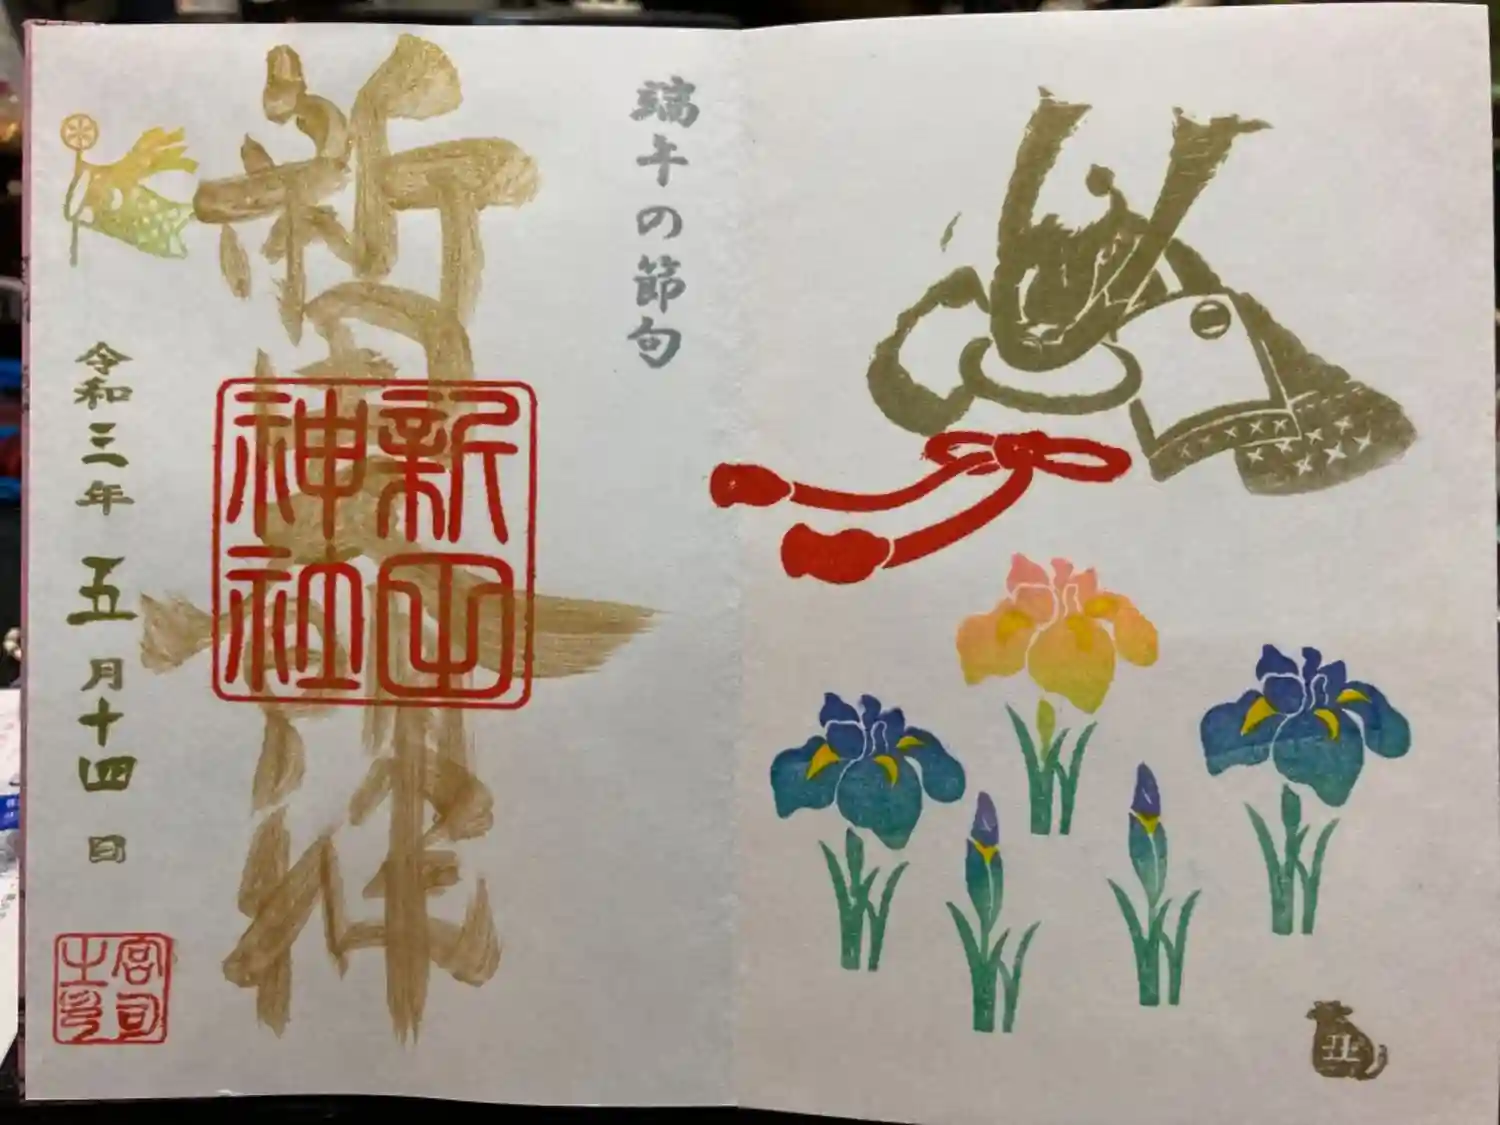 端午の節句
新田神社
新田神社
令和三年五月十四日
宮司之印
丑